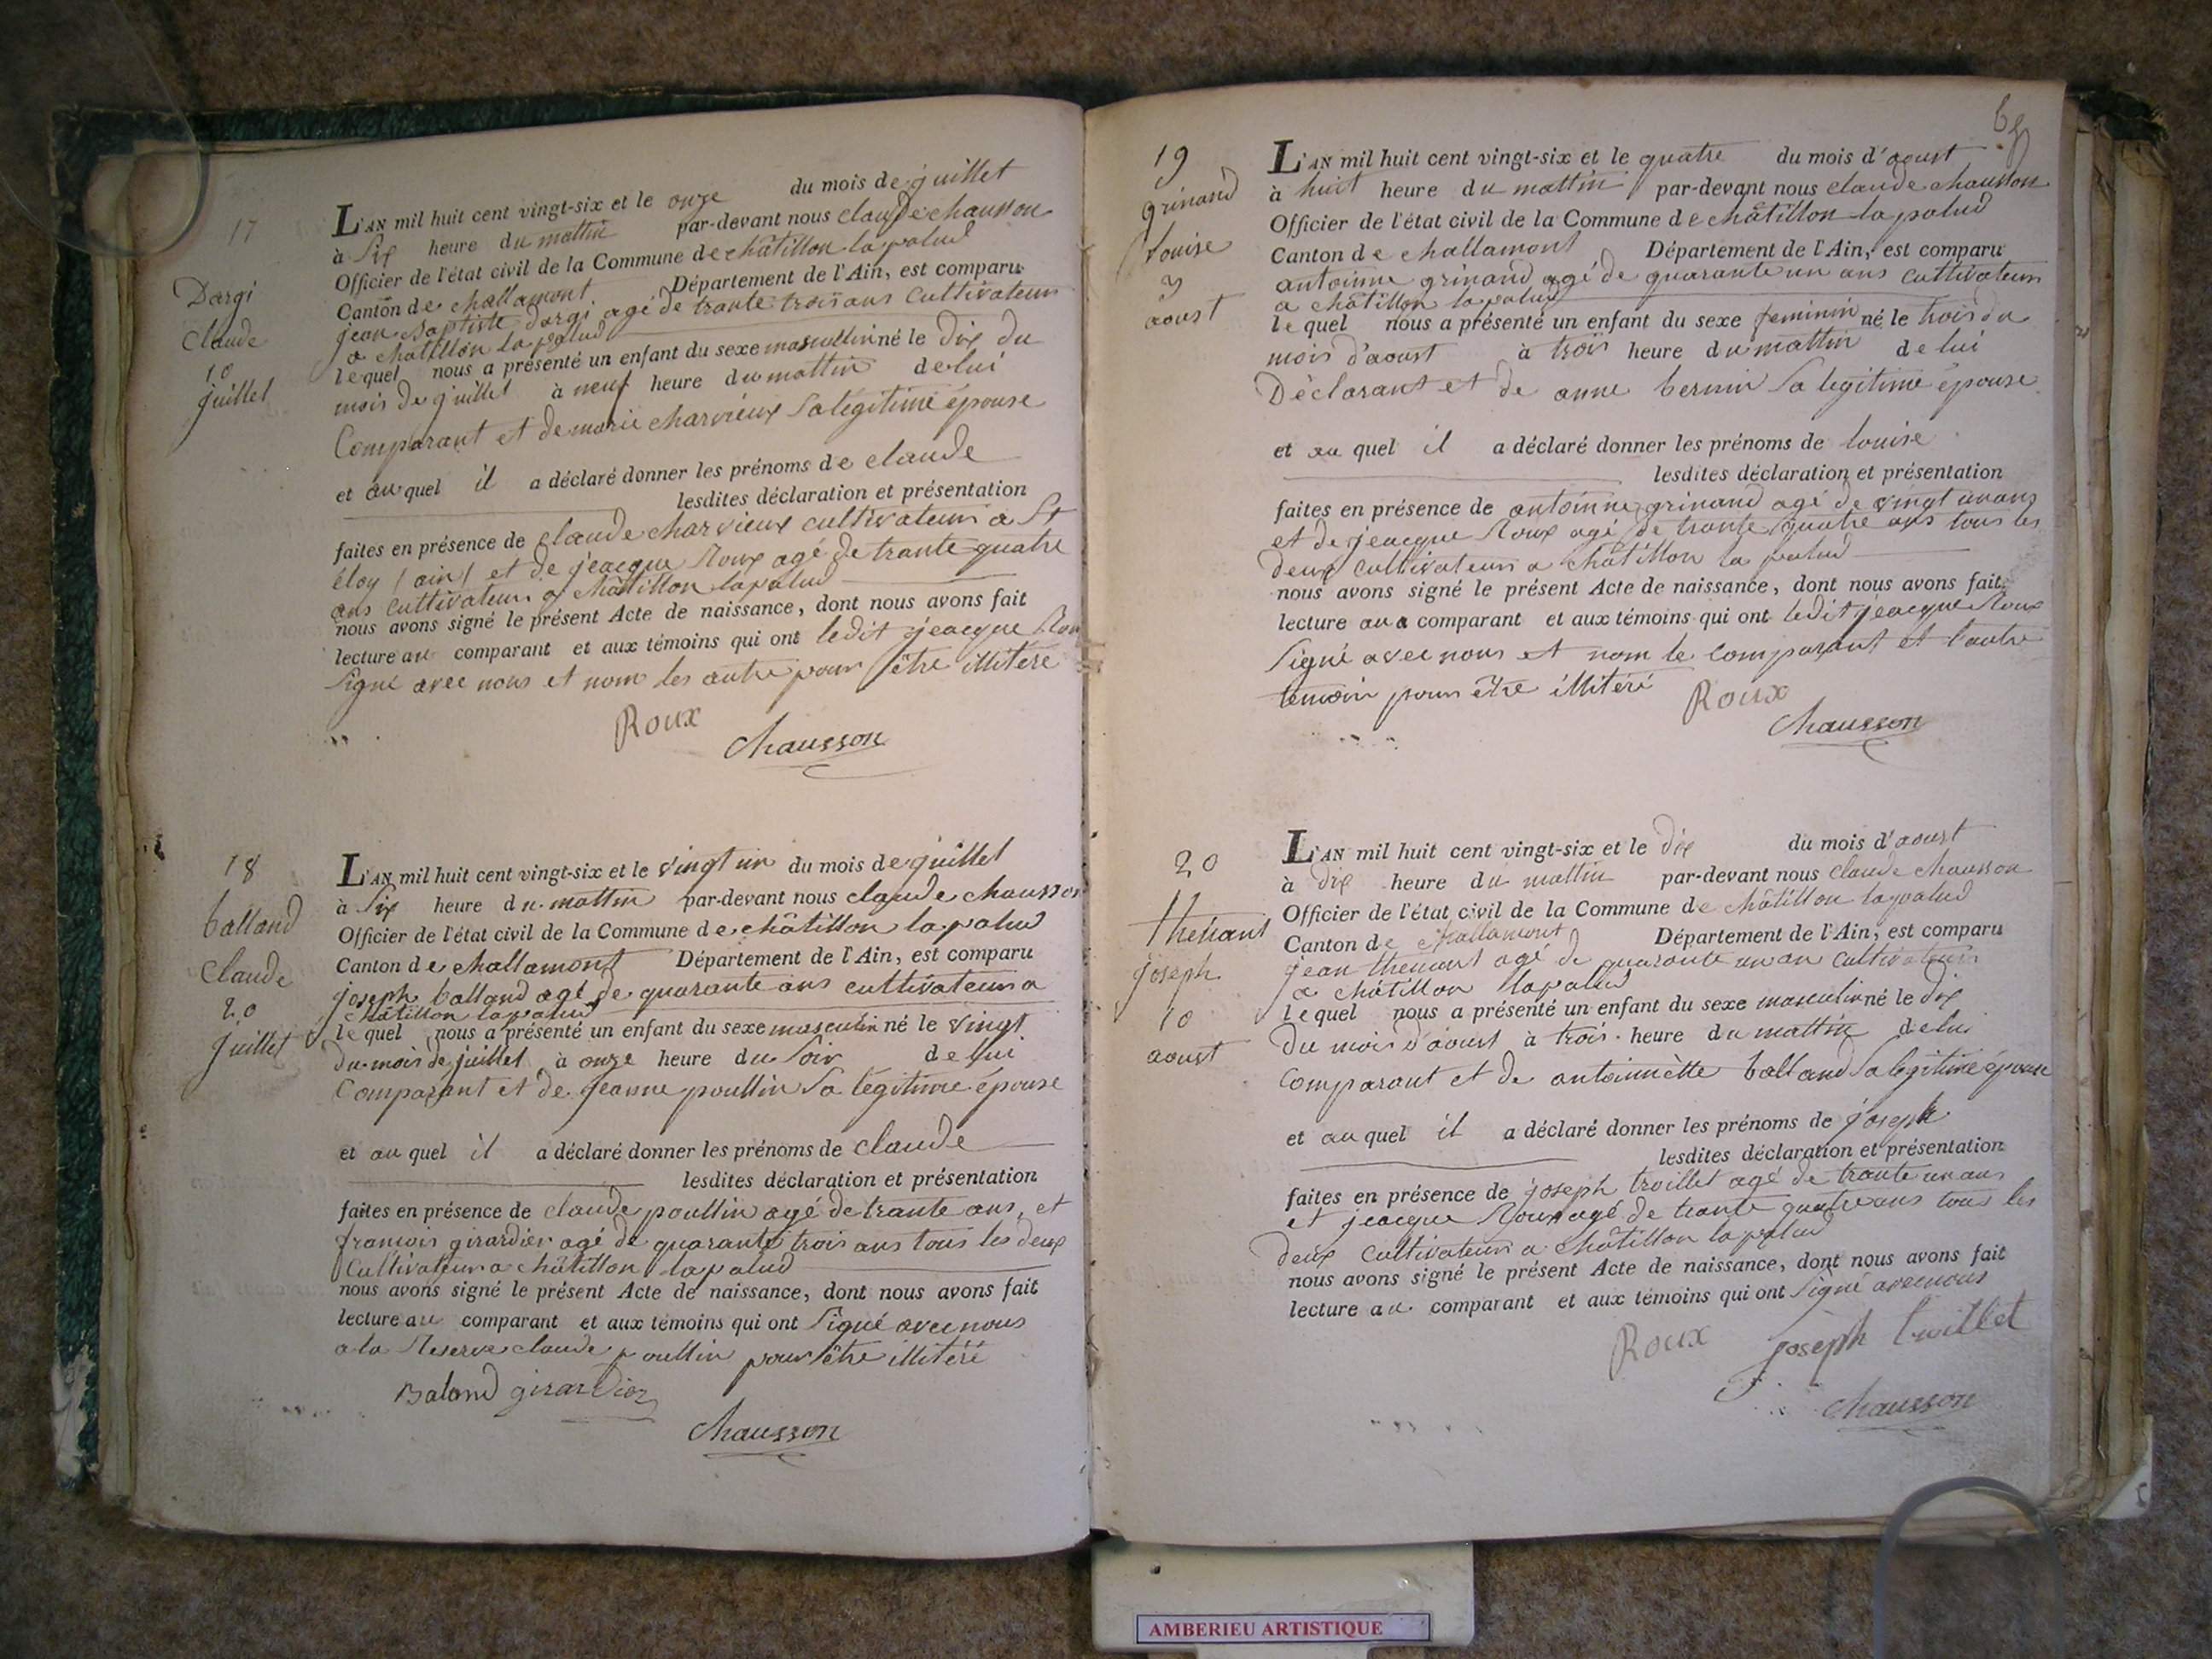 17
Dargi
Claude
10
juillet
L'AN mil huit cent vingt-six et le onze du mois de juillet
à six heure du mattin par-devant nous claude chausson
Officier de l'état civil de la Commune de châtillon la palud
Canton de challamont Département de l'Ain, est comparu
jean baptiste dargi agé de trante trois ans cultivateur
a châtillon la palud
lequel nous a présenté un enfant du sexe masculin né le dix du
mois de juillet à neuf heure du mattin de lui
Comparant et de marie charvieux sa légitime épouse
et auquel il a déclaré donner les prénoms de claude
lesdites déclaration et présentation
faites en présence de claude charvieux cultivateur a St
éloy (ain) et de jeacque Roux agé de trante quatre
ans cultivateur a châtillon la palud
nous avons signé le présent Acte de naissance, dont nous avons fait
lecture au comparant et aux témoins qui ont ledit jeacque Roux
signé avec nous et nom les autre pour être illitéré
Roux
Chausson
18
balland
Claude
20
juillet
L'AN mil huit cent vingt-six et le vingt un du mois de juillet
à six heure du mattin par-devant nous claude chausson
Officier de l'état civil de la Commune de châtillon la palud
Canton de challamont Département de l'Ain, est comparu
joseph balland agé de quarante ans cultivateur a
châtillon la palud
lequel nous a présenté un enfant du sexe masculin né le vingt
du mois de juillet à onze heure du soir de lui
Comparant et de jeanne poullin sa légitime épouse
et auquel il a déclaré donner les prénoms de claude
lesdites déclaration et présentation
faites en présence de claude poullin agé de trante ans, et
francois girardier agé de quarante trois ans tous les deux
Cultivateur a châtillon la palud
nous avons signé le présent Acte de naissance, dont nous avons fait
lecture au comparant et aux témoins qui ont signé avec nous
a la Reserve claude poullin pour être illitéré
Baland girardier
Chausson
19
grinand
louise
3
aoust
L'AN mil huit cent vingt-six et le quatre du mois d'aoust
à huit heure du mattin par-devant nous claude chausson
Officier de l'état civil de la Commune de châtillon la palud
Canton de challamont Département de l'Ain, est comparu
antoinne grinand agé de quarante un ans cultivateur
a châtillon la palud
lequel nous a présenté un enfant du sexe feminin né le trois du
mois d'aoust à trois heure du mattin de lui
Déclarant et de anne bernin sa legitime épouse
et au quel il a déclaré donner les prénoms de louise
lesdites déclaration et présentation
faites en présence de antoinne grinand agé de vingt un ans
et de jeacque Roux agé de trante quatre ans tous les
deux cultivateur a châtillon la palud
nous avons signé le présent Acte de naissance, dont nous avons fait
lecture au comparant et aux témoins qui ont ledit jeacque Roux
signé avec nous et nom le comparant et l'autre
temoin pour être illitéré
Roux
Chausson
20
Thenant
joseph
10
aoust
L'AN mil huit cent vingt-six et le dix du mois d'aoust
à dix heure du mattin par-devant nous claude chausson
Officier de l'état civil de la Commune de châtillon la palud
Canton de challamont Département de l'Ain, est comparu
jean thenant agé de quarante un an cultivateur
a châtillon la palud
lequel nous a présenté un enfant du sexe masculin né le dix
du mois d'aoust à trois heure du mattin de lui
Comparant et de antoinnètte balland sa legitime épouse
et au quel il a déclaré donner les prénoms de joseph
lesdites déclaration et présentation
faites en présence de joseph troillet agé de trante un ans
et jeacque Roux agé de trante quatre ans tous les
deux cultivateur a châtillon la palud
nous avons signé le présent Acte de naissance, dont nous avons fait
lecture au comparant et aux témoins qui ont signé avec nous
Roux
joseph
chausson
AMBERIEU ARTISTIQUE